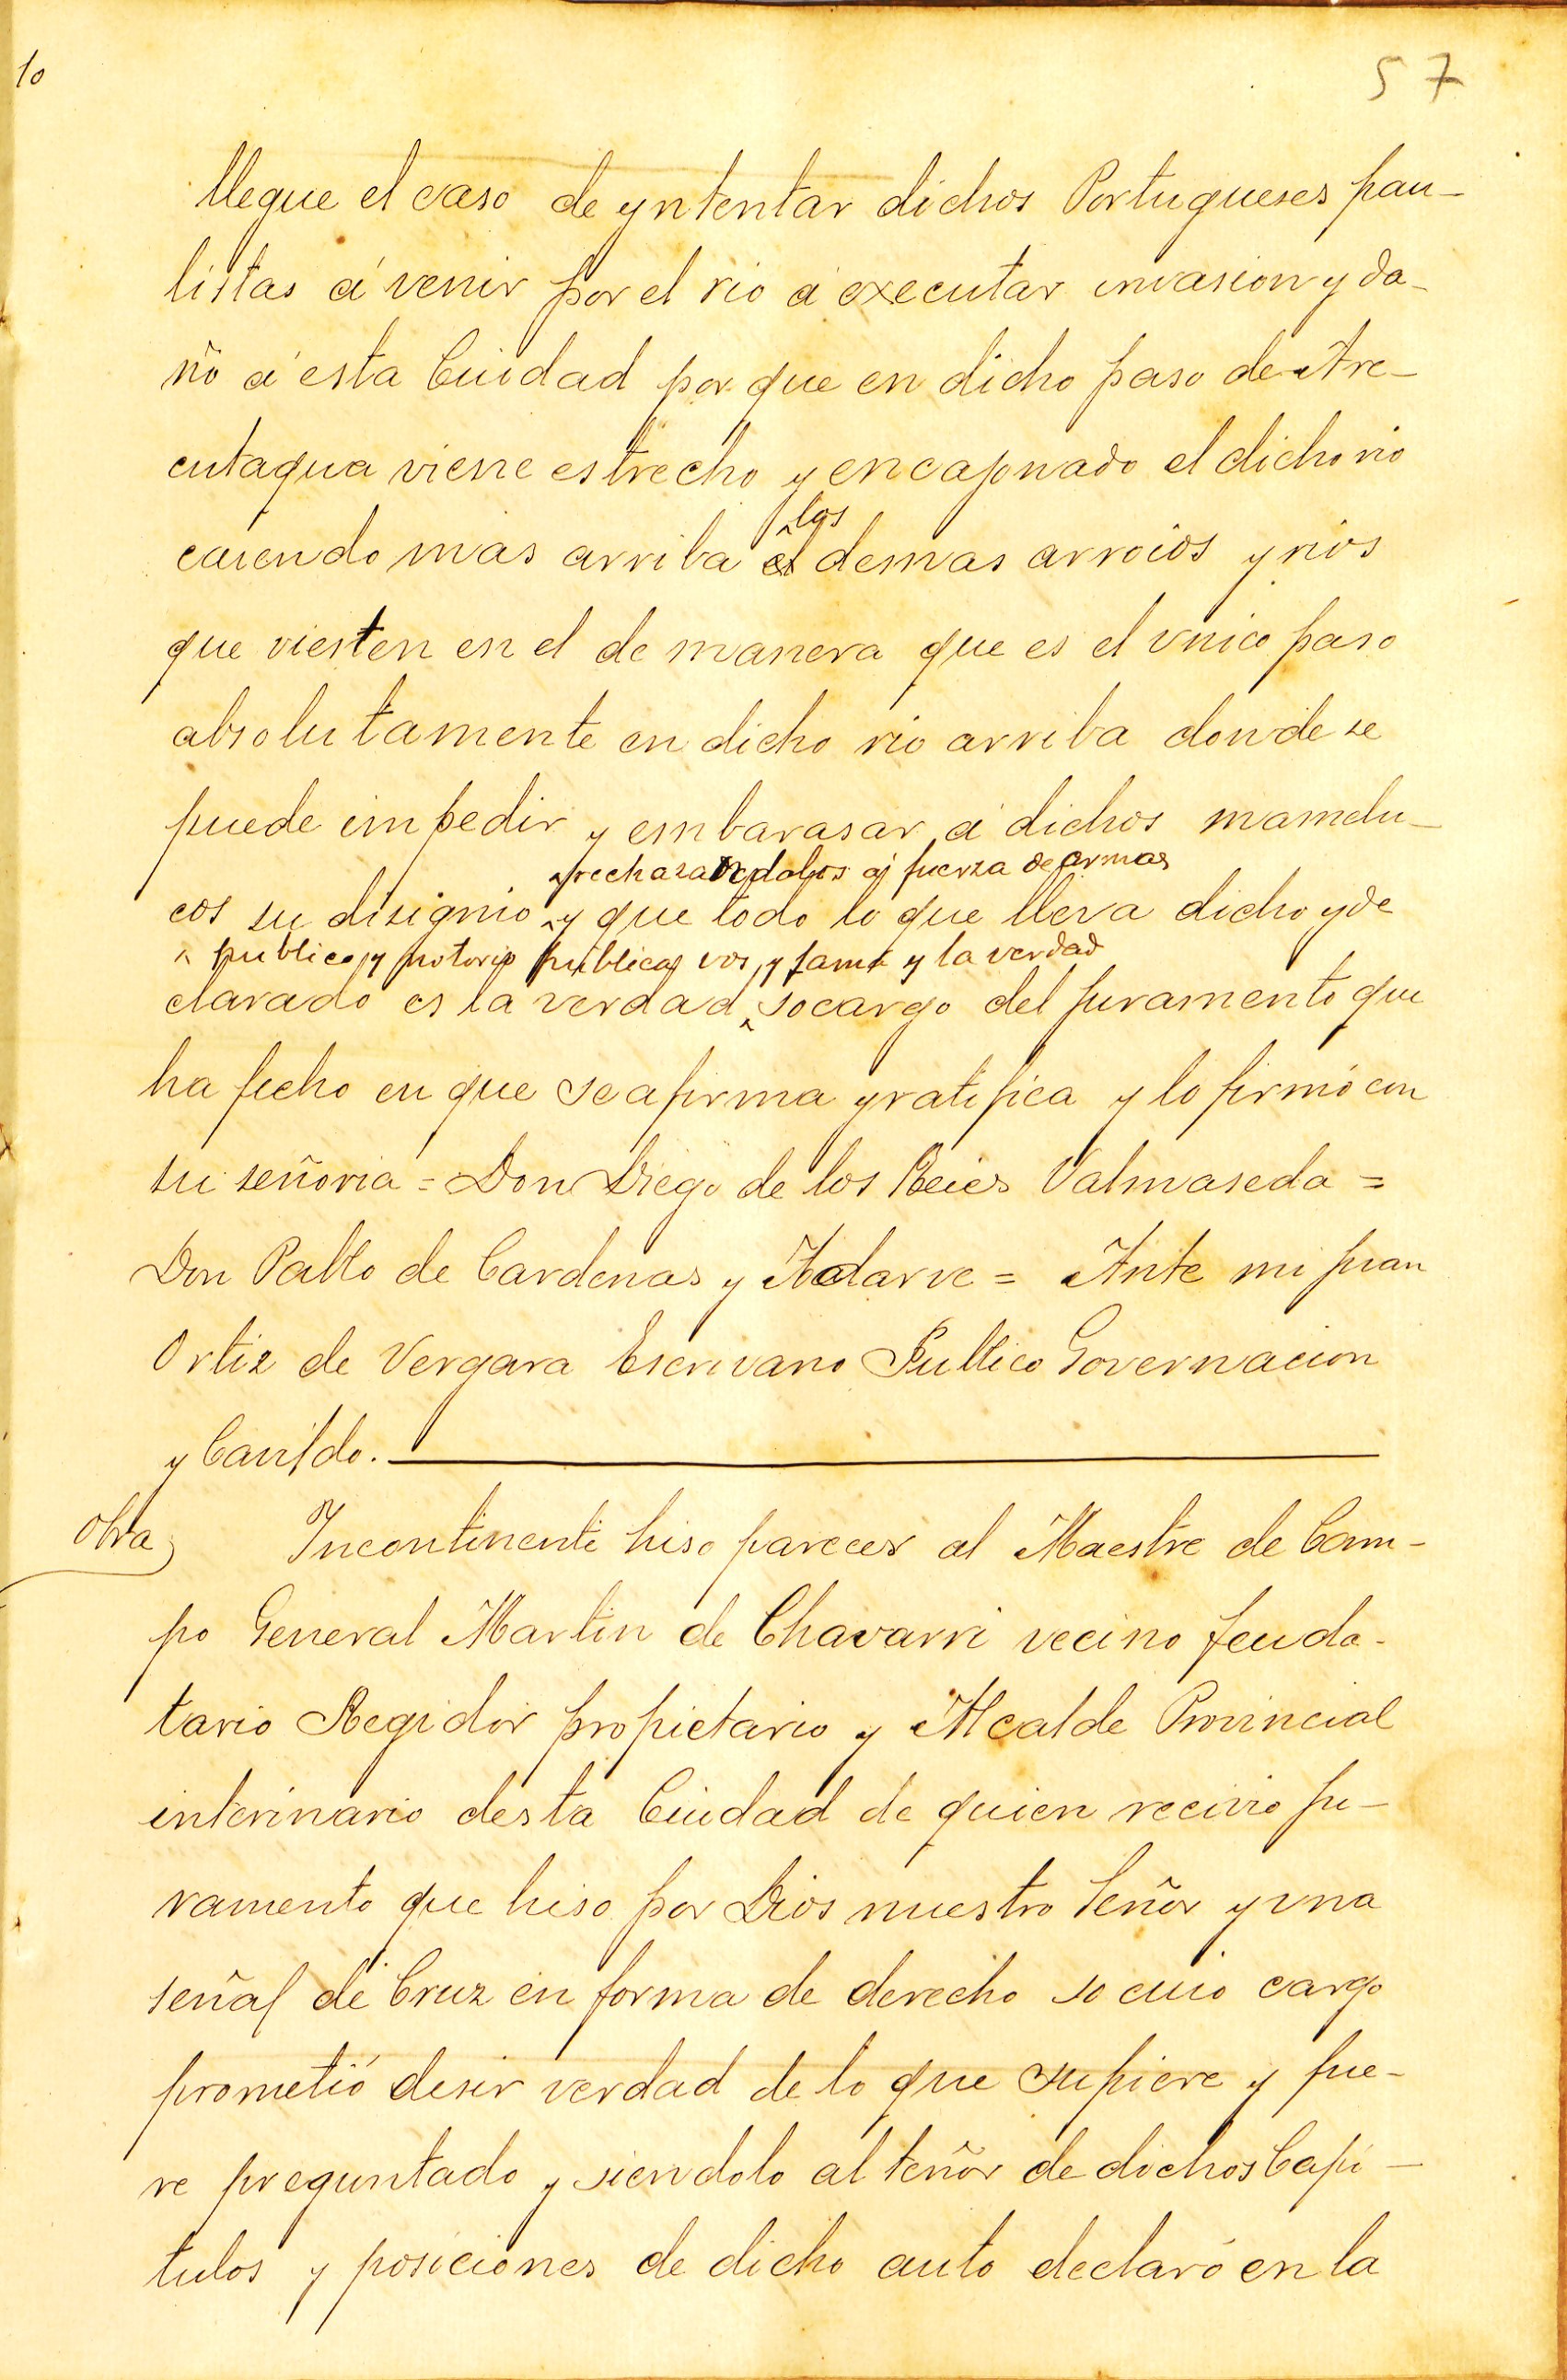 10
57
llegue el caso de yntentar dichos Portugueses pau-
listas á venir por el rio á executar invasion y da-
ño á esta Ciudad por que en dicho paso de Are-
cutagua viene estrecho y encajonado el dicho rio
los
caiendo mas arriba el demas arroios y rios
que vierten en el de manera que es el vnico paso
absolutamente en dicho rio arriba donde se
puede impedir y embarasar á dichos mamelu-
rechasandolos á fuerza de armas
cos su disignio y que todo lo que lleva dicho y de
publico y notorio publica vos y fama y la verdad
clarado es la verdad socargo del juramento que
ha fecho en que se afirma y ratifica y lo firmó con
su señoria = Don Diego de los Reies Valmaseda =
Don Pablo de Cardenas y Adarve = Ante mi Juan
Ortiz de Vergara Escrivano Publico Governacion
y Cavildo.
Otra
Incontinenti hiso parecer al Maestre de Cam-
po General Martin de Chavarri vecino feuda-
tario Regidor propietario y Alcalde Provincial
interinario desta Ciudad de quien recivio ju-
ramento que hiso por Dios nuestro Señor y vna
señal de Cruz en forma de derecho so cuio cargo
prometió desir verdad de lo que supiere y fue-
re preguntado y siendolo al teñor de dichos Capi-
tulos y posiciones de dicho auto declaró en la